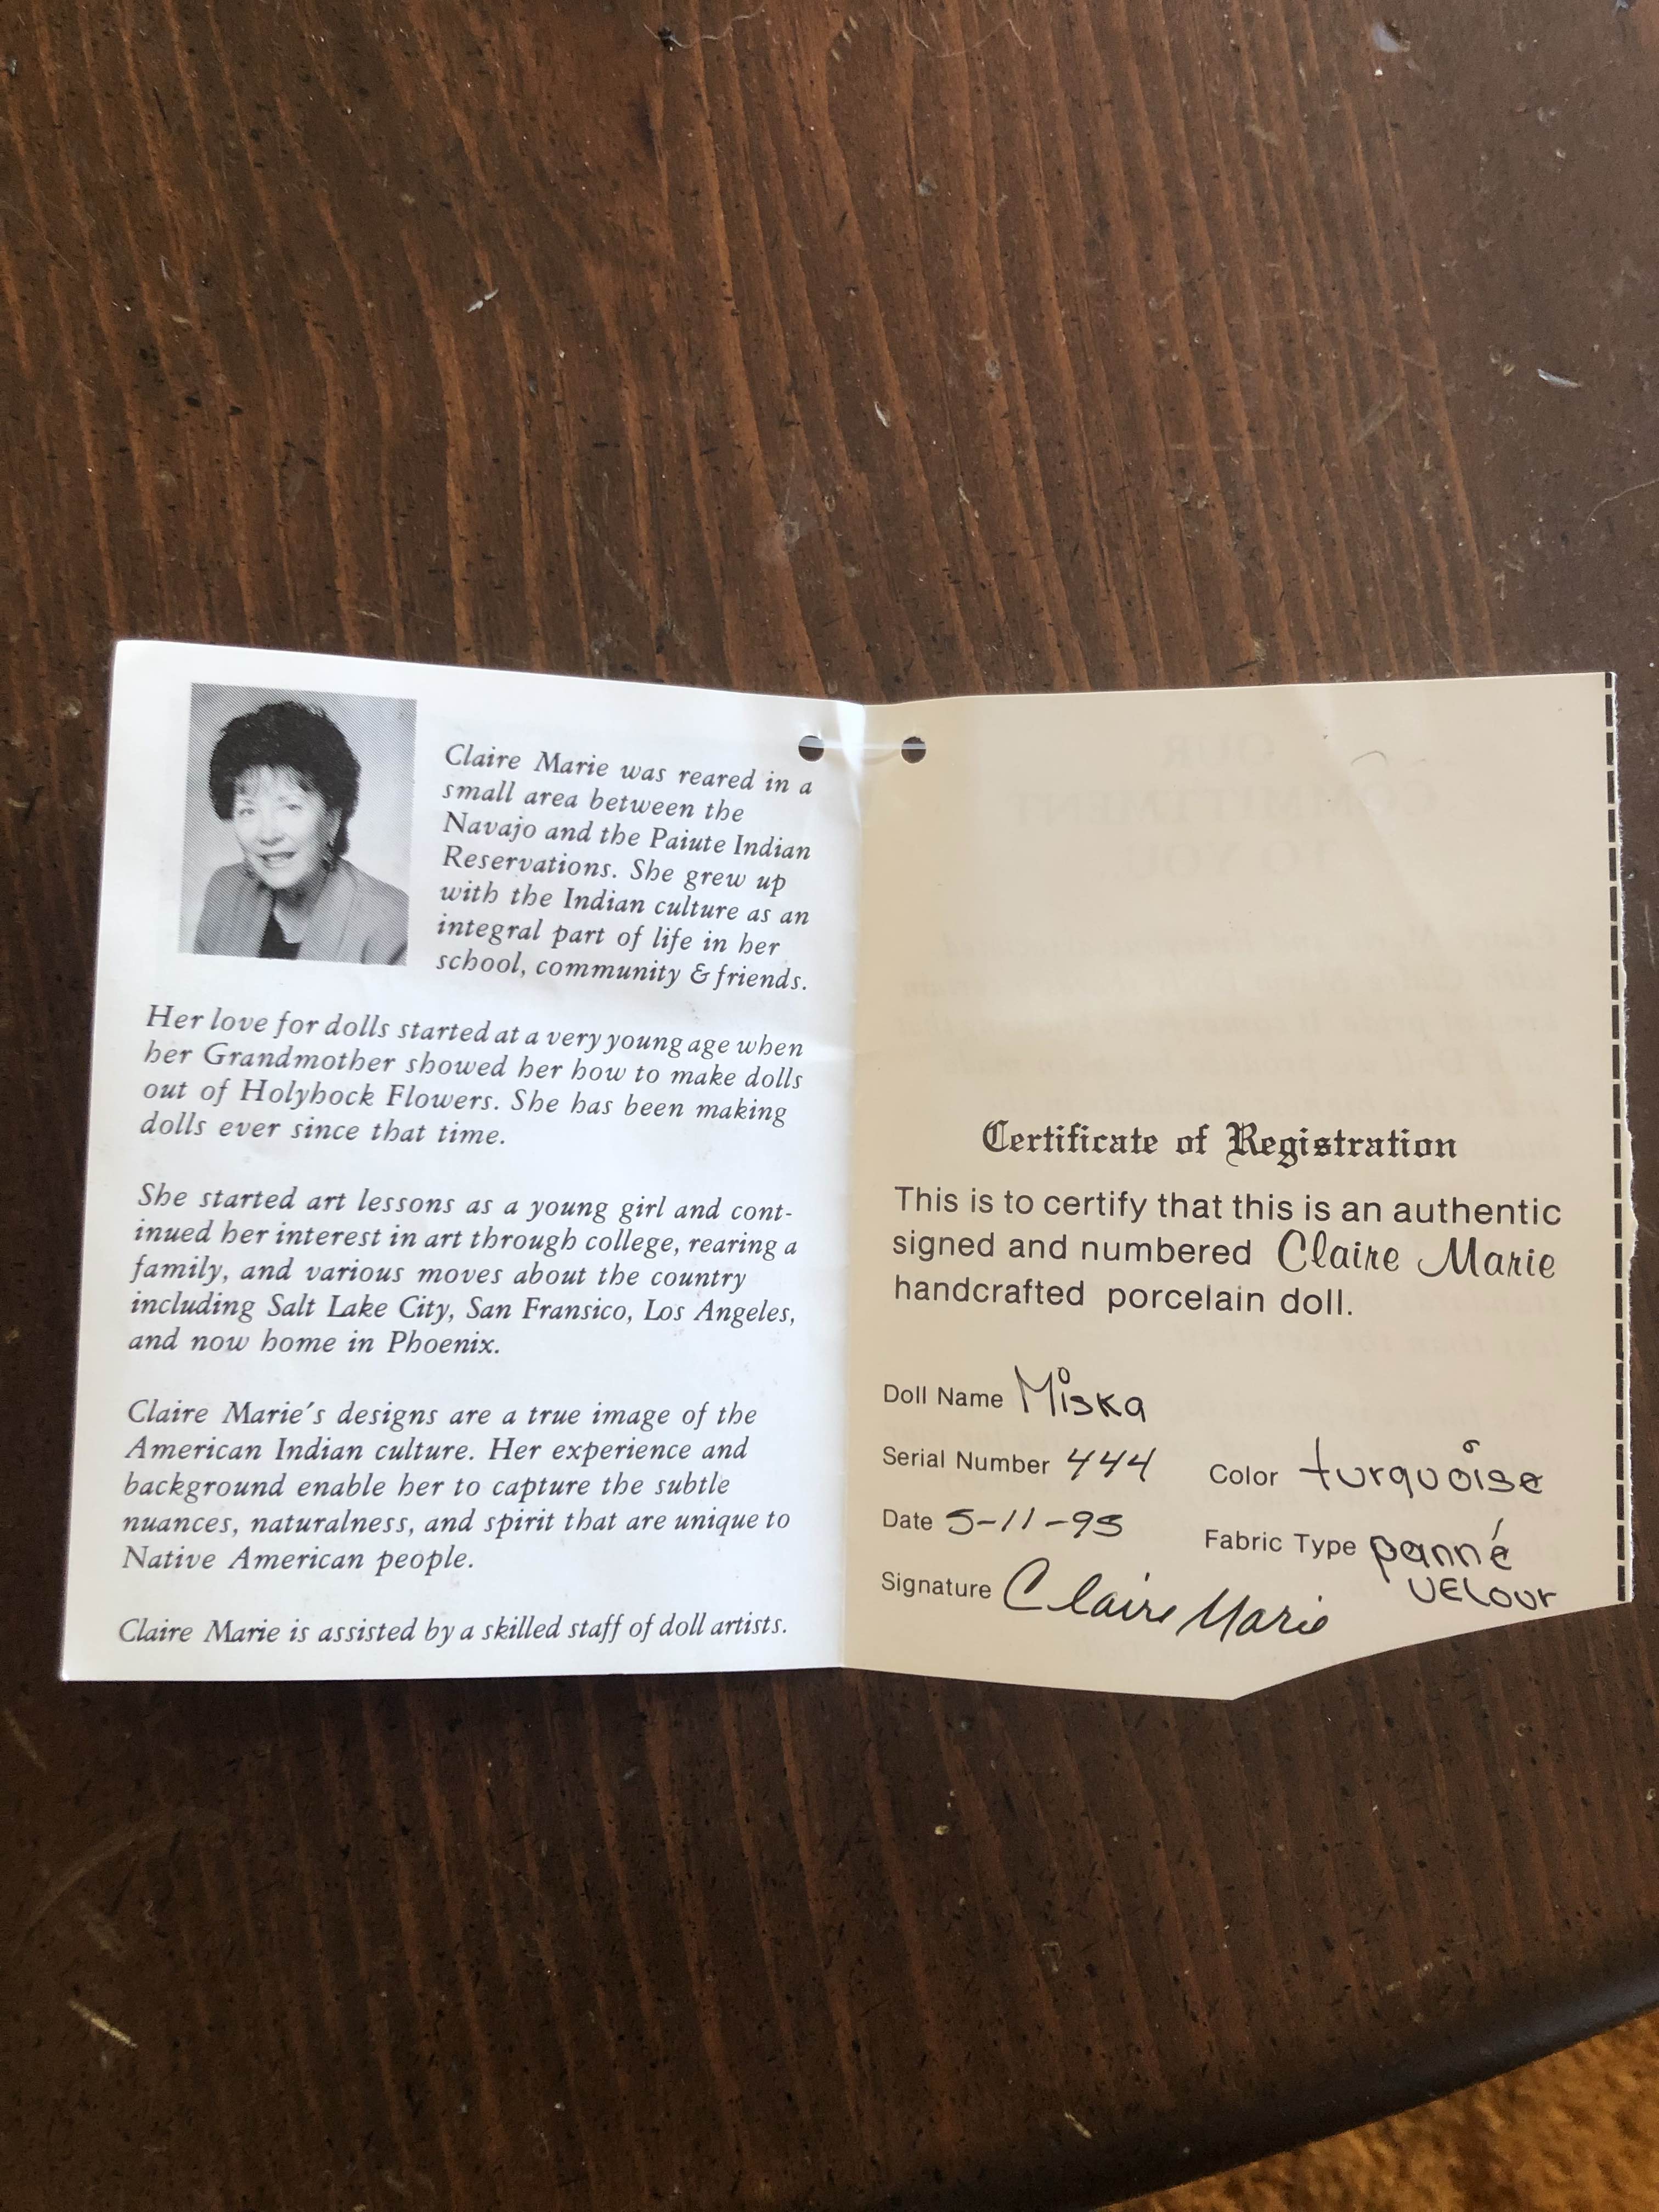 Claire Marie was reared in a
small area between the
Navajo and the Paiute Indian
Reservations. She grew up
with the Indian culture as an
integral part of life in her
school, community & friends.
Her love for dolls started at a very young age when
her Grandmother showed her how to make dolls
out of Holyhock Flowers. She has been making
dolls ever since that time.
She started art lessons as a young girl and cont-
inued her interest in art through college, rearing a
family, and various moves about the country
including Salt Lake City, San Fransico, Los Angeles,
and now home in Phoenix.
Claire Marie's designs are a true image of the
American Indian culture. Her experience and
background enable her to capture the subtle
nuances, naturalness, and spirit that are unique to
Native American people.
Claire Marie is assisted by a skilled staff of doll artists.
Certificate of Registration
This is to certify that this is an authentic
signed and numbered Claire Marie
handcrafted porcelain doll.
Doll Name Miska
Serial Number 444 Color turquoise
Date 5-11-95 Fabric Type panné
velour
Signature Claire Marie